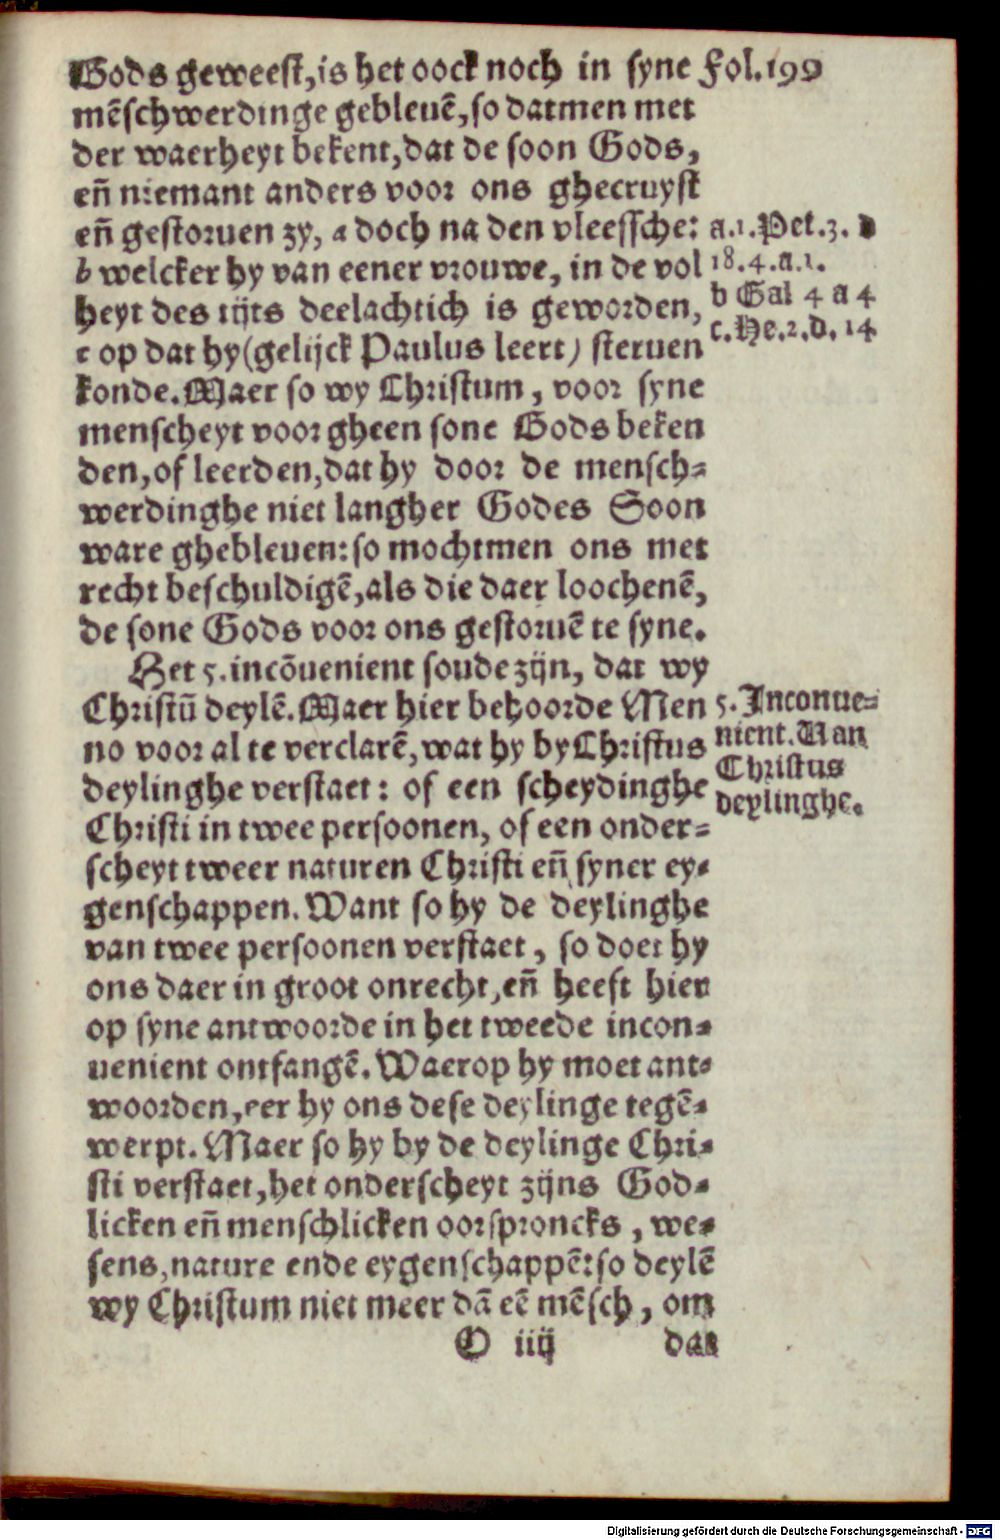 Gods geweest, is het oock noch in syne Fol. 199
mēschwerdinge gebleuē, so datmen met
der waerheyt bekent, dat de soon Gods,
eñ niemant anders voor ons ghecruyst
eñ gestoruen zy, a doch na den vleessche:
b welcker hy van eener vrouwe, in de vol
heyt des tijts deelachtich is geworden,
c op dat hy (gelijck Paulus leert) steruen
konde. Maer so wy Christum, voor syne
menscheyt voor gheen sone Gods beken
den, of leerden, dat hy door de mensch-
werdinghe niet langher Godes Soon
ware ghebleuen: so mochtmen ons met
recht beschuldigē, als die daer loochenē,
de sone Gods voor ons gestoruē te syne.
Het 5. incōuenient soude zijn, dat wy
Christū deylē. Maer hier behoorde Men
no voor al te verclarē, wat hy by Christus
deylinghe verstaet: of een scheydinghe
Christi in twee persoonen, of een onder-
scheyt tweer naturen Christi eñ syner ey-
genschappen. Want so hy de deylinghe
van twee persoonen verstaet, so doet hy
ons daer in groot onrecht, eñ heeft hier
op syne antwoorde in het tweede incon-
uenient ontfangē. Waerop hy moet ant-
woorden, eer hy ons dese deylinge tegē-
werpt. Maer so hy by de deylinge Chri-
sti verstaet, het onderscheyt zijns God-
licken eñ menschlicken oorsproncks, we-
sens, nature ende eygenschappē: so deylē
wy Christum niet meer dā eē mēsch, om
O iiij dat
a. 1. Pet. 3. b
18. 4. a. 1.
b Gal 4 a 4
c. He. 2. d. 14
5. Inconue-
nient. Van
Christus
deylinghe.
Digitalisierung gefördert durch die Deutsche Forschungsgemeinschaft - DFG